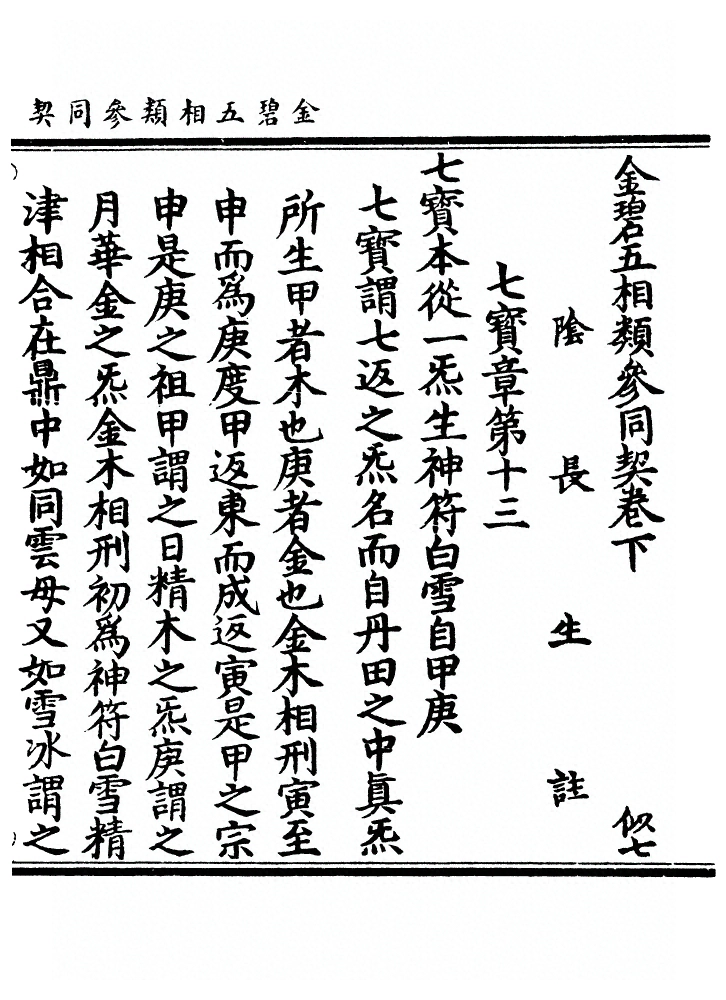 金碧五相類參同契
金碧五相類參同契卷下 似七
陰長生註
七寶章第十三
七寶本從一炁生神符白雪自甲庚
七寶謂七返之炁名而自丹田之中眞炁
所生甲者木也庚者金也金木相刑寅至
申而爲庚度甲返東而成返寅是甲之宗
申是庚之祖甲謂之日精木之炁庚謂之
月華金之炁金木相刑初爲神符白雪精
津相合在鼎中如同雲母又如雪冰謂之